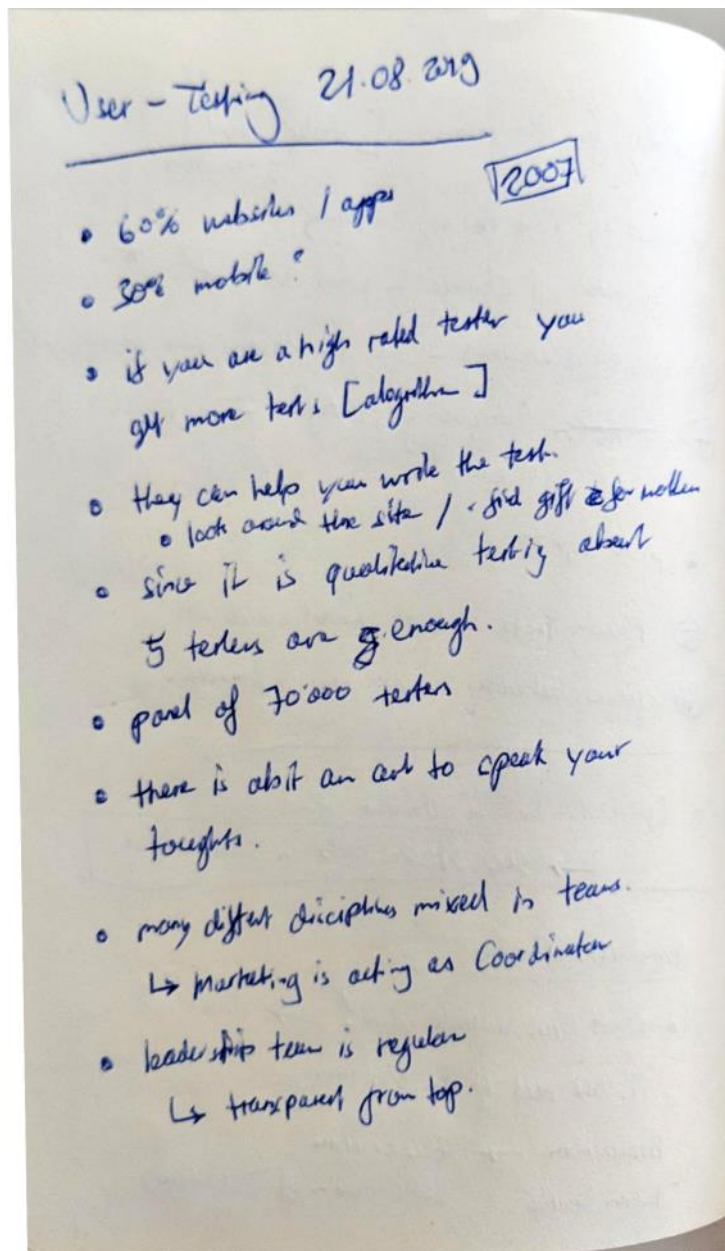 User - Testing 21.08.2019
2007
• 60% websites / apps
• 30% mobile ?
• if you are a high rated tester you
get more tests [alogrithm]
• they can help you write the test.
• look around the site / • find gift for mother
• since it is qualitative testing about
5 testers are enough.
• panel of 70'000 testers
• there is abit an art to speak your
toughts.
• many diffent disciplines mixed in teams.
↳ Marketing is acting as Coordinator
• leadership team is regular
↳ transparent from top.